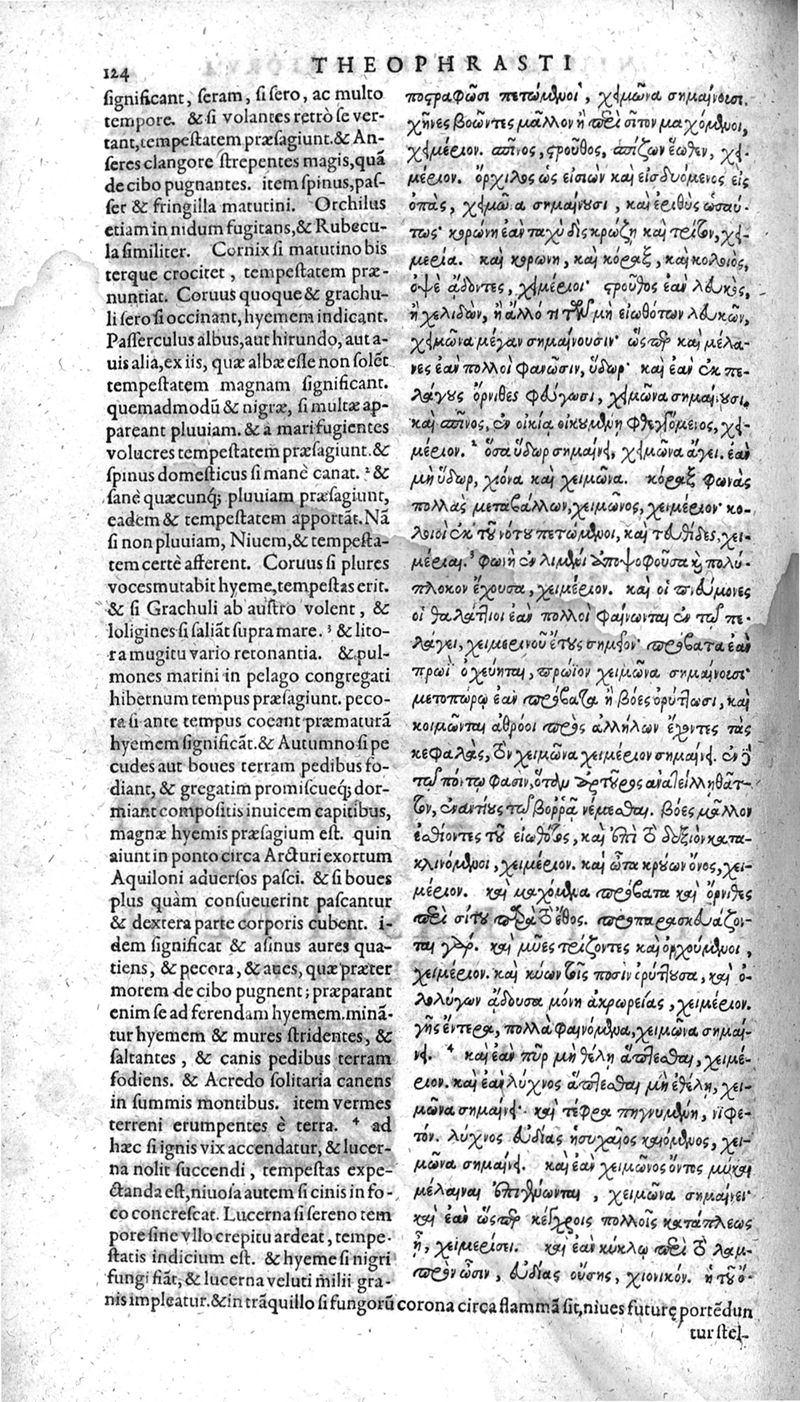 124 THEOPHRASTI
ſignificant, ſeram, ſi ſero, ac multo
tempore. & ſi volantes retrò ſe ver-
tant, tempeſtatem præſagiunt. & An-
ſeres clangore ſtrepentes magis, quã
de cibo pugnantes. item ſpinus, paſ-
ſer & fringilla matutini. Orchilus
etiam in nidum fugitans, & Rubecu-
la ſimiliter. Cornix ſi matutino bis
terque crocitet, tempeſtatem præ-
nuntiat. Coruus quoque & grachu-
li ſero ſi occinant, hyemem indicant.
Paſſerculus albus, aut hirundo, aut a-
uis alia, ex iis, quæ albæ eſſe non ſolẽt
tempeſtatem magnam ſignificant.
quemadmodũ & nigræ, ſi multæ ap-
pareant pluuiam. & à mari fugientes
volucres tempeſtatem præſagiunt. &
ſpinus domeſticus ſi manè canat. ² &
ſanè quæcunq; pluuiam præſagiunt,
eadem & tempeſtatem apportãt. Nã
ſi non pluuiam, Niuem, & tempeſta-
tem certè afferent. Coruus ſi plures
voces mutabit hyeme, tempeſtas erit.
& ſi Grachuli ab auſtro volent, &
loligines ſi ſaliãt ſupra mare. ³ & lito-
ra mugitu vario retonantia. & pul-
mones marini in pelago congregati
hibernum tempus præſagiunt. peco-
ra ſi ante tempus coeant præmaturã
hyemem ſignificãt. & Autumno ſi pe
cudes aut boues terram pedibus fo-
diant, & gregatim promiſcueq́; dor-
miant compoſitis inuicem capitibus,
magnæ hyemis præſagium eſt. quin
aiunt in ponto circa Arcturi exortum
Aquiloni aduerſos paſci. & ſi boues
plus quàm conſueuerint paſcantur
& dextera parte corporis cubent. i-
dem ſignificat & aſinus aures qua-
tiens, & pecora, & aues, quæ præter
morem de cibo pugnent; præparant
enim ſe ad ferendam hyemem. minã-
tur hyemem & mures ſtridentes, &
ſaltantes, & canis pedibus terram
fodiens. & Acredo ſolitaria canens
in ſummis montibus. item vermes
terreni erumpentes è terra. ⁴ ad
hæc ſi ignis vix accendatur, & lucer-
na nolit ſuccendi, tempeſtas expe-
ctanda eſt, niuoſa autem ſi cinis in fo-
co concreſcat. Lucerna ſi ſereno tem
pore ſine vllo crepitu ardeat, tempe-
ſtatis indicium eſt. & hyeme ſi nigri
fungi fiãt, & lucerna veluti milii gra-
nis impleatur. & in trãquillo ſi fungorũ corona circa flammã ſit, niues futurę portẽdun
tur ſtel-
ποςραφῶσι πετόμενοι, χειμῶνα σημαίνουσι.
χῆνες βοῶντες μᾶλλον ἢ περὶ σῖτον μαχόμενοι,
χειμέριον. σπῖνος, στρουθὸς, σπίζων ἕωθεν, χει-
μέριον. ὄρχιλος ὡς εἰσιὼν καὶ εἰσδυόμενος εἰς
ὀπὰς, χειμῶνα σημαίνουσι, καὶ ἐριθὺς ὡσαύ-
τως· κορώνη ἐὰν ταχὺ δὶς κρώζῃ καὶ τρίτον, χει-
μερία. καὶ κορώνη, καὶ κόραξ, καὶ κολοιὸς,
ὀψὲ ᾄδοντες, χειμέριοι· στρουθὸς ἐὰν λευκὸς,
ἢ χελιδὼν, ἢ ἄλλό τι τῶν μὴ εἰωθότων λευκῶν,
χειμῶνα μέγαν σημαίνουσιν· ὥσπερ καὶ μέλα-
νες ἐὰν πολλοὶ φανῶσιν, ὕδωρ· καὶ ἐὰν ἐκ πε-
λάγους ὄρνιθες φεύγωσι, χειμῶνα σημαίνουσι.
καὶ σπῖνος, ἐν οἰκίᾳ οἰκουμένῃ φθεγγόμενος, χει-
μέριον. ² ὅσα ὕδωρ σημαίνει, χειμῶνα ἄγει. ἐὰν
μὴ ὕδωρ, χιόνα καὶ χειμῶνα. κόραξ φωνὰς
πολλὰς μεταβάλλων, χειμῶνος, χειμέριον· κο-
λοιοὶ ἐκ τοῦ νότου πετόμενοι, καὶ τευθίδες, χει-
μέριαι. ³ φωνὴ ἐν λιμένι ἀποψοφοῦσα καὶ πολύ-
πλοκον ἔχουσα, χειμέριον. καὶ οἱ πνεύμονες
οἱ θαλάττιοι ἐὰν πολλοὶ φαίνωνται ἐν τῷ πε-
λάγει, χειμερινοῦ ἔτους σημεῖον· πρόβατα ἐὰν
πρωῒ ὀχεύηται, πρώϊον χειμῶνα σημαίνουσι·
μετοπώρῳ ἐὰν πρόβατα ἢ βόες ὀρύττωσι, καὶ
κοιμῶνται ἀθρόοι πρὸς ἀλλήλων ἔχοντες τὰς
κεφαλὰς, τὸν χειμῶνα χειμέριον σημαίνει. ἐν δὲ
τῷ πόντῳ φασὶν, ὅταν ἀρκτοῦρος ἀνατείλῃ θᾶτ-
τον, ἐναντίους τῷ βορρᾷ νέμεσθαι. βόες μᾶλλον
ἐσθίοντες τοῦ εἰωθότος, καὶ ἐπὶ τὸ δεξιὸν κατα-
κλινόμενοι, χειμέριον. καὶ ὦτα κρούων ὄνος, χει-
μέριον. καὶ μαχόμενα πρόβατα καὶ ὄρνιθες
περὶ σίτου παρὰ τὸ ἔθος. προπαρασκευάζον-
ται γάρ. καὶ μύες τρίζοντες καὶ ὀρχούμενοι,
χειμέριον. καὶ κύων τοῖς ποσὶν ὀρύττουσα, καὶ ὀ-
λολύγων ᾄδουσα μόνη ἀκρωρείας, χειμέριον.
γῆς ἔντερα, πολλὰ φαινόμενα, χειμῶνα σημαί-
νει. ⁴ καὶ ἐὰν πῦρ μὴ θέλῃ ἅπτεσθαι, χειμέ-
ριον. καὶ ἐὰν λύχνος ἅπτεσθαι μὴ ἐθέλῃ, χει-
μῶνα σημαίνει· καὶ τέφρα πηγνυμένη, νιφε-
τόν. λύχνος εὐδίας ἡσυχαῖος καιόμενος, χει-
μῶνα σημαίνει. καὶ ἐὰν χειμῶνος ὄντος μύκαι
μέλαιναι ἐπιγένωνται, χειμῶνα σημαίνει·
καὶ ἐὰν ὥσπερ κέγχροις πολλοῖς κατάπλεως
ᾖ, χειμερίσει. καὶ ἐὰν κύκλῳ περὶ τὸ λαμ-
πρὸν ὦσιν, εὐδίας οὔσης, χιονικόν. ἡ τοῦ ὀ-